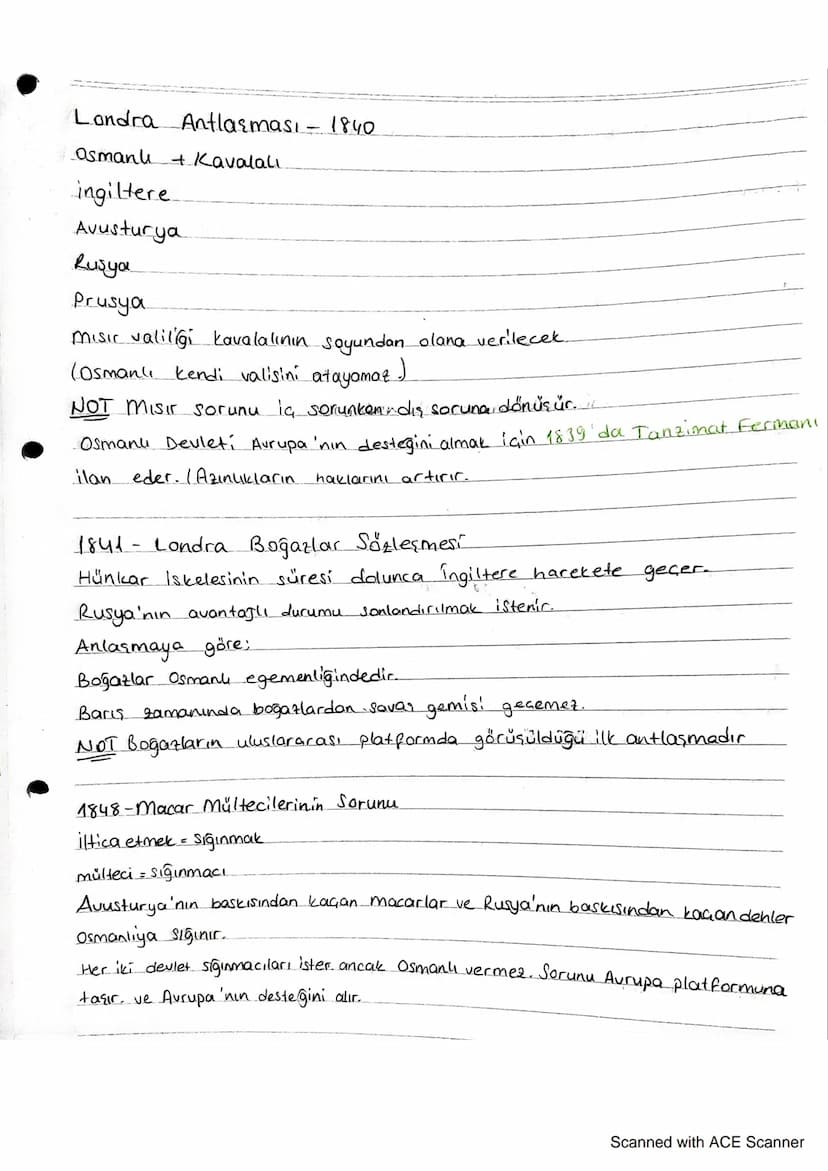 Londra Antlaşması - 1840
Osmanlı + Kavalalı
ingiltere
Avusturya
Rusya
Prusya
mısır valiliği kavalalının soyundan olana verilecek.
(Osmanlı kendi valisini atayamaz.)
NOT Mısır sorunu iç sorunken dış soruna dönüşür.
Osmanlı Devleti Avrupa'nın desteğini almak için 1839'da Tanzimat Fermanı
ilan eder. (Azınlıkların haklarını artırır.
1841 - Londra Boğazlar Sözleşmesi
Hünkar İskelesinin süresi dolunca ingiltere harekete geçer.
Rusya'nın avantajlı durumu sonlandırılmak istenir.
Anlaşmaya göre;
Boğazlar Osmanlı egemenliğindedir.
Barış zamanında boğazlardan savaş gemisi geçemez.
NOT Boğazların uluslararası platformda görüşüldüğü ilk antlaşmadır
1848 - Macar Mültecilerinin Sorunu
iltica etmek = sığınmak
mülteci = sığınmacı
Avusturya'nın baskısından kaçan macarlar ve Rusya'nın baskısından kaçan dehler
Osmanlıya sığınır.
Her iki devlet sığınmacıları ister. ancak Osmanlı vermez. Sorunu Avrupa platformuna
taşır. ve Avrupa'nın desteğini alır.
Scanned with ACE Scanner